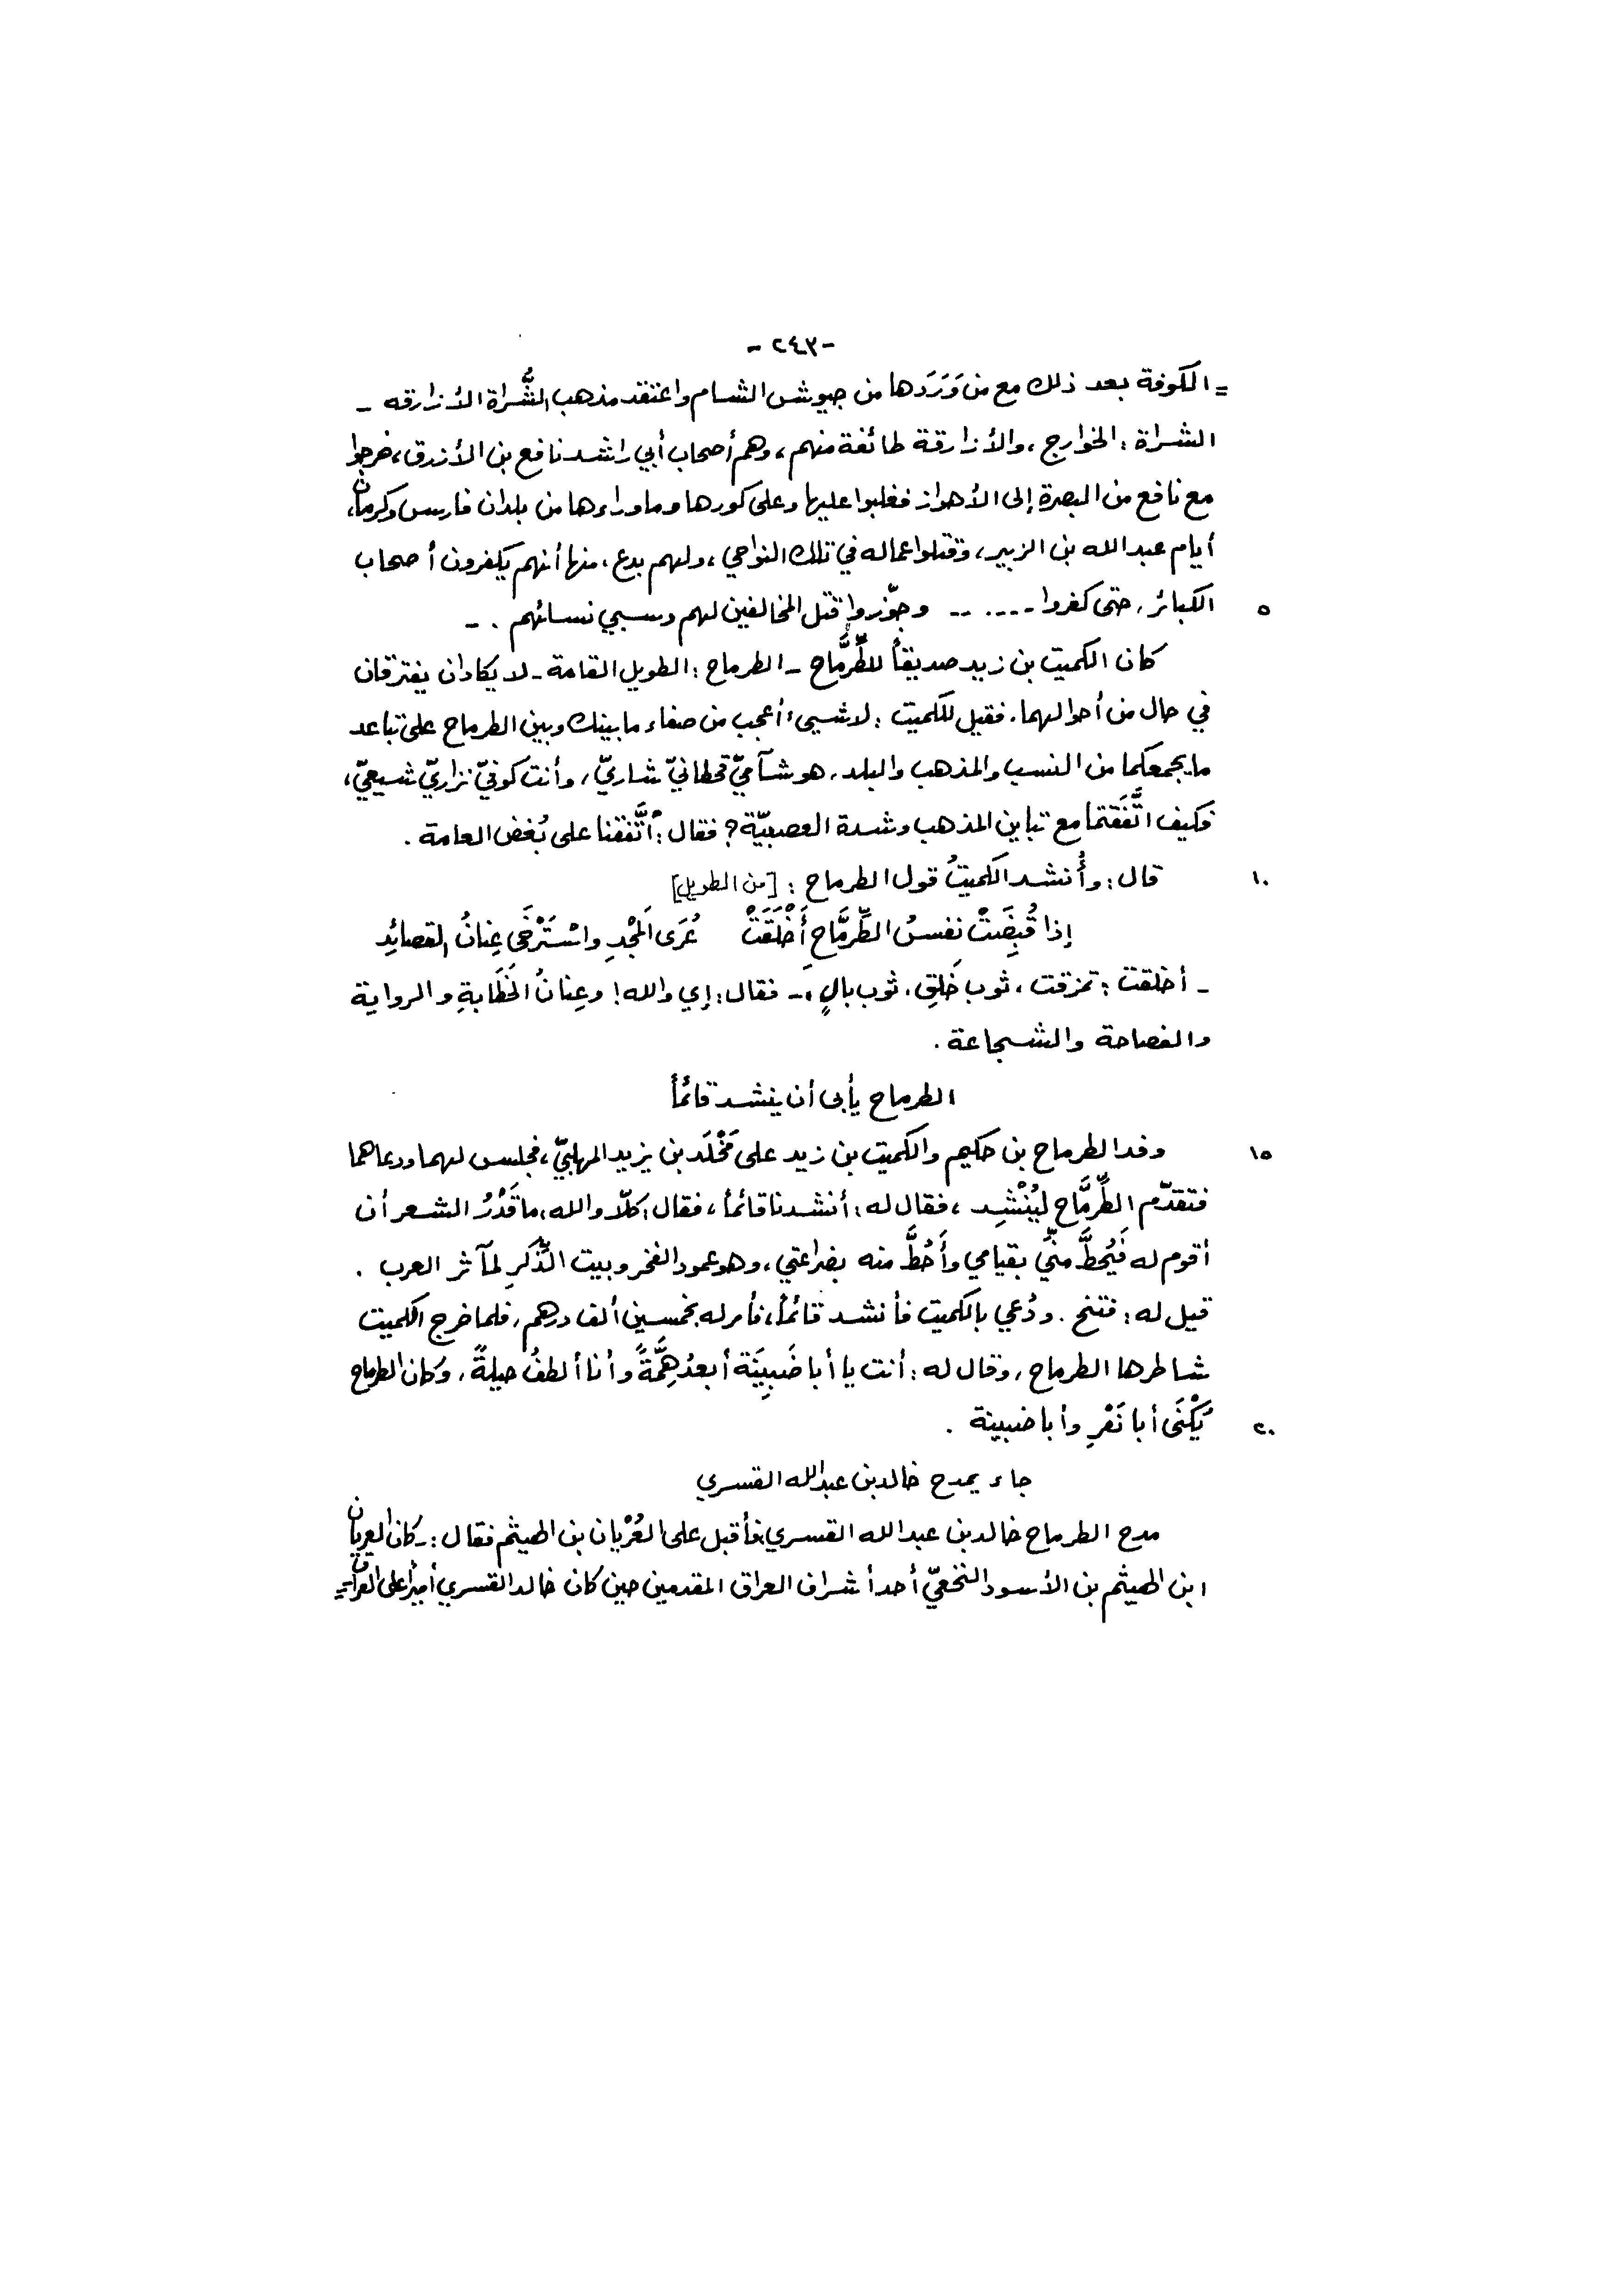 -٢٤٣-
= الكوفة بعد ذلك مع من وَرَدَها من جيوش الشام واعتقد مذهب الشُّراة الأزارقه -
الشراة : الخوارج ، والأزارقة طائفة منهم ، وهم أصحاب أبي راشد نافع بن الأزرق ، خرجوا
مع نافع من البصرة إلى الأهواز فغلبوا عليها وعلى كورها وما وراءها من بلدان فارس وكرمان ،
أيام عبد الله بن الزبير ، وقتلوا عماله في تلك النواحي ، ولهم بدع ، منها أنهم يكفرون أصحاب
٥ الكبائر ، حتى كفروا ...... وجوّزوا قتل المخالفين لهم وسبي نسائهم . -
كان الكميت بن زيد صديقاً للطِّرِمَّاح - الطرماح : الطويل القامة - لا يكادان يفترقان
في حال من أحوالهما . فقيل للكميت : لا شيىء أعجب من صفاء ما بينك وبين الطرماح على تباعد
ما يجمعكما من النسب والمذهب والبلد ، هو شآميّ قحطانيّ شاريّ ، وأنت كوفيّ نزاريّ شيعيّ ،
فكيف اتَّفَقتما مع تباين المذهب وشدة العصبيّة ؟ فقال : اتَّفقنا على بُغض العامة .
١٠ قال : وأُنشد الكميتُ قول الطرماح : [من الطويل]
إذا قُبِضَتْ نفسُ الطِّرِمَّاحِ أَخْلَقَتْ عُرَى المَجْدِ واسْتَرْخَى عِنانُ القصائدِ
- أخلقت : تمزقت ، ثوب خَلِق ، ثوب بالٍ ، - فقال : إي والله ! وعِنانُ الخَطَابةِ والرواية
والفصاحة والشجاعة .
الطرماح يأبى أن ينشد قائماً
١٥ وفد الطرماح بن حكيم والكميت بن زيد على مَخْلَد بن يزيد المهلبيّ ، فجلس لهما ودعاهما
فتقدّم الطِّرِمَّاح ليُنْشِد ، فقال له : أنشدنا قائماً ، فقال : كلّا والله ، ما قَدْرُ الشعر أن
أقوم له فَيُحطَّ منِّي بقيامي وأَحُطَّ منه بضراعتي ، وهو عمود الفخر وبيت الذِّكرِ لمآثر العرب .
قيل له : فتنح . ودُعي بالكميت فأنشد قائماً ، فأمر له بخمسين ألف درهم ، فلما خرج الكميت
شاطرها الطرماح ، وقال له : أنت يا أبا ضَبِينَة أبعدُ هِمَّةً وأنا ألطفُ حيلةً ، وكان الطرماح
٢٠ يُكْنَى أبا نَفْرٍ وأبا ضبينة .
جاء يمدح خالد بن عبد الله القسري
مدح الطرماح خالد بن عبد الله القسري فأقبل على العُرْيان بن الهيثم فقال : - كان العريان
ابن الهيثم بن الأسود النخعيّ أحد أشراف العراق المقدمين حين كان خالد القسري أميراً على العراق =